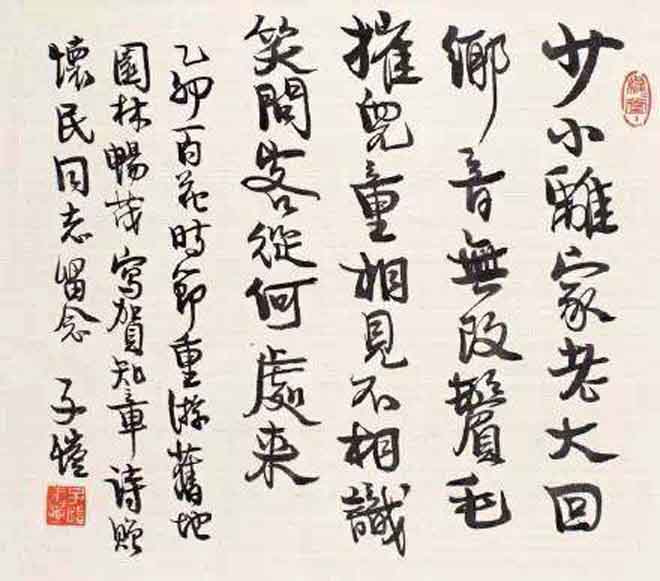 少小離家老大回
鄉音無改鬢毛
摧兒童相見不相識
笑問客從何處来
乙卯百花時節重游舊地
園林暢茂寫賀知章詩贈
懷民同志留念 子愷